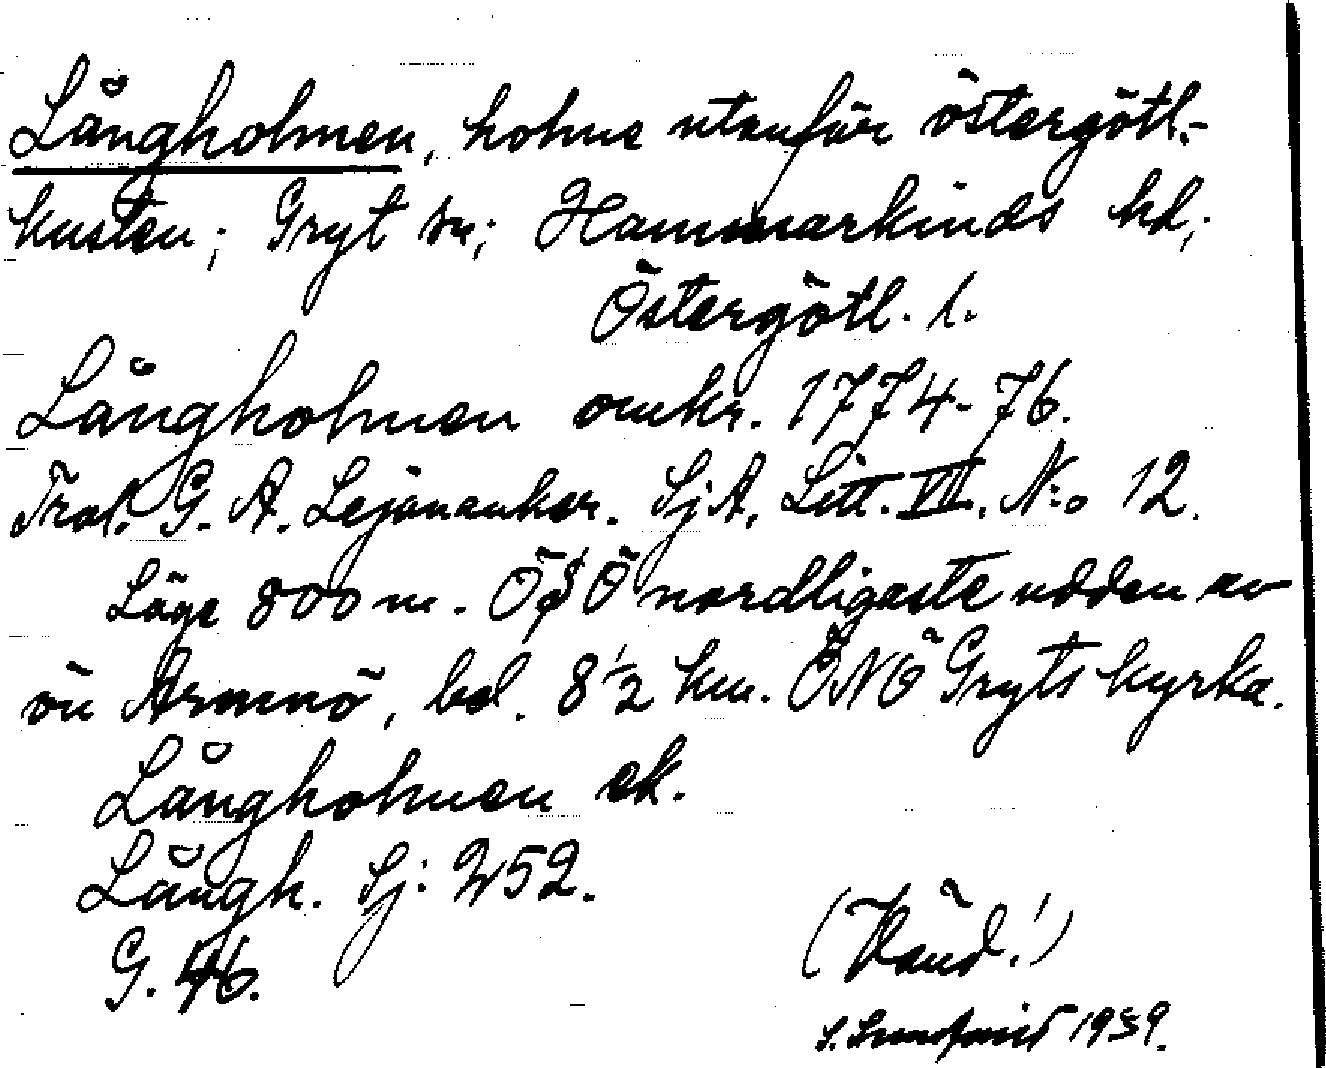 Långholmen, holme utanför östergötl.-
kusten; Gryt sn; Hammarkinds hd;
Östergötl. l.
Långholmen omkr. 1774-76.
Trol. G. A. Lejonanker. SjA, Litt. VII. N:o 12.
Läge 800 m. Ö$Ö nordligaste udden av
ön Armnö, bel. 8 1/2 km. ÖNÖ Gryts kyrka.
Långholmen ek.
Långh. Sj: 252.
G. 46.
(Vänd!)
S. 1939.